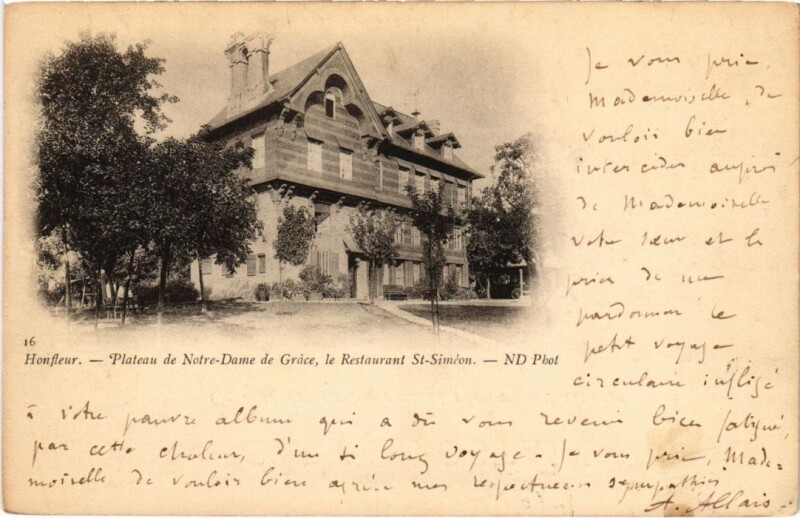 Je vous prie,
Mademoiselle, de
vouloir bien
intercéder auprès
de Mademoiselle
votre sœur et la
prier de me
pardonner le
petit voyage
circulaire infligé
à votre pauvre album qui a dû vous revenir bien fatigué,
par cette chaleur, d'un si long voyage. Je vous prie, Made-
moiselle de vouloir bien agréer mes respectueuses sympathies
A. Allais
16
Honfleur. — Plateau de Notre-Dame de Grâce, le Restaurant St-Siméon. — ND Phot